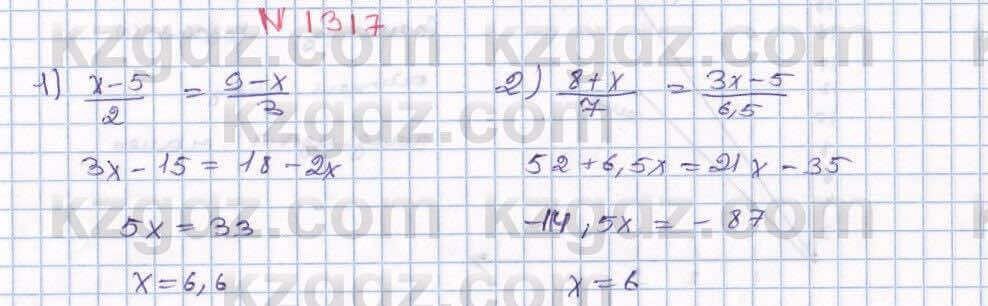 N 1317
1) x-5/2 = 9-x/3
3x-15 = 18-2x
5x = 33
x = 6,6
2) 8+x/7 = 3x-5/6,5
52+6,5x = 21x-35
-14,5x = -87
x = 6
kzgdz.com kzgdz.com
kzgdz.com
kzgdz.com kzgdz.com
kzgdz.com